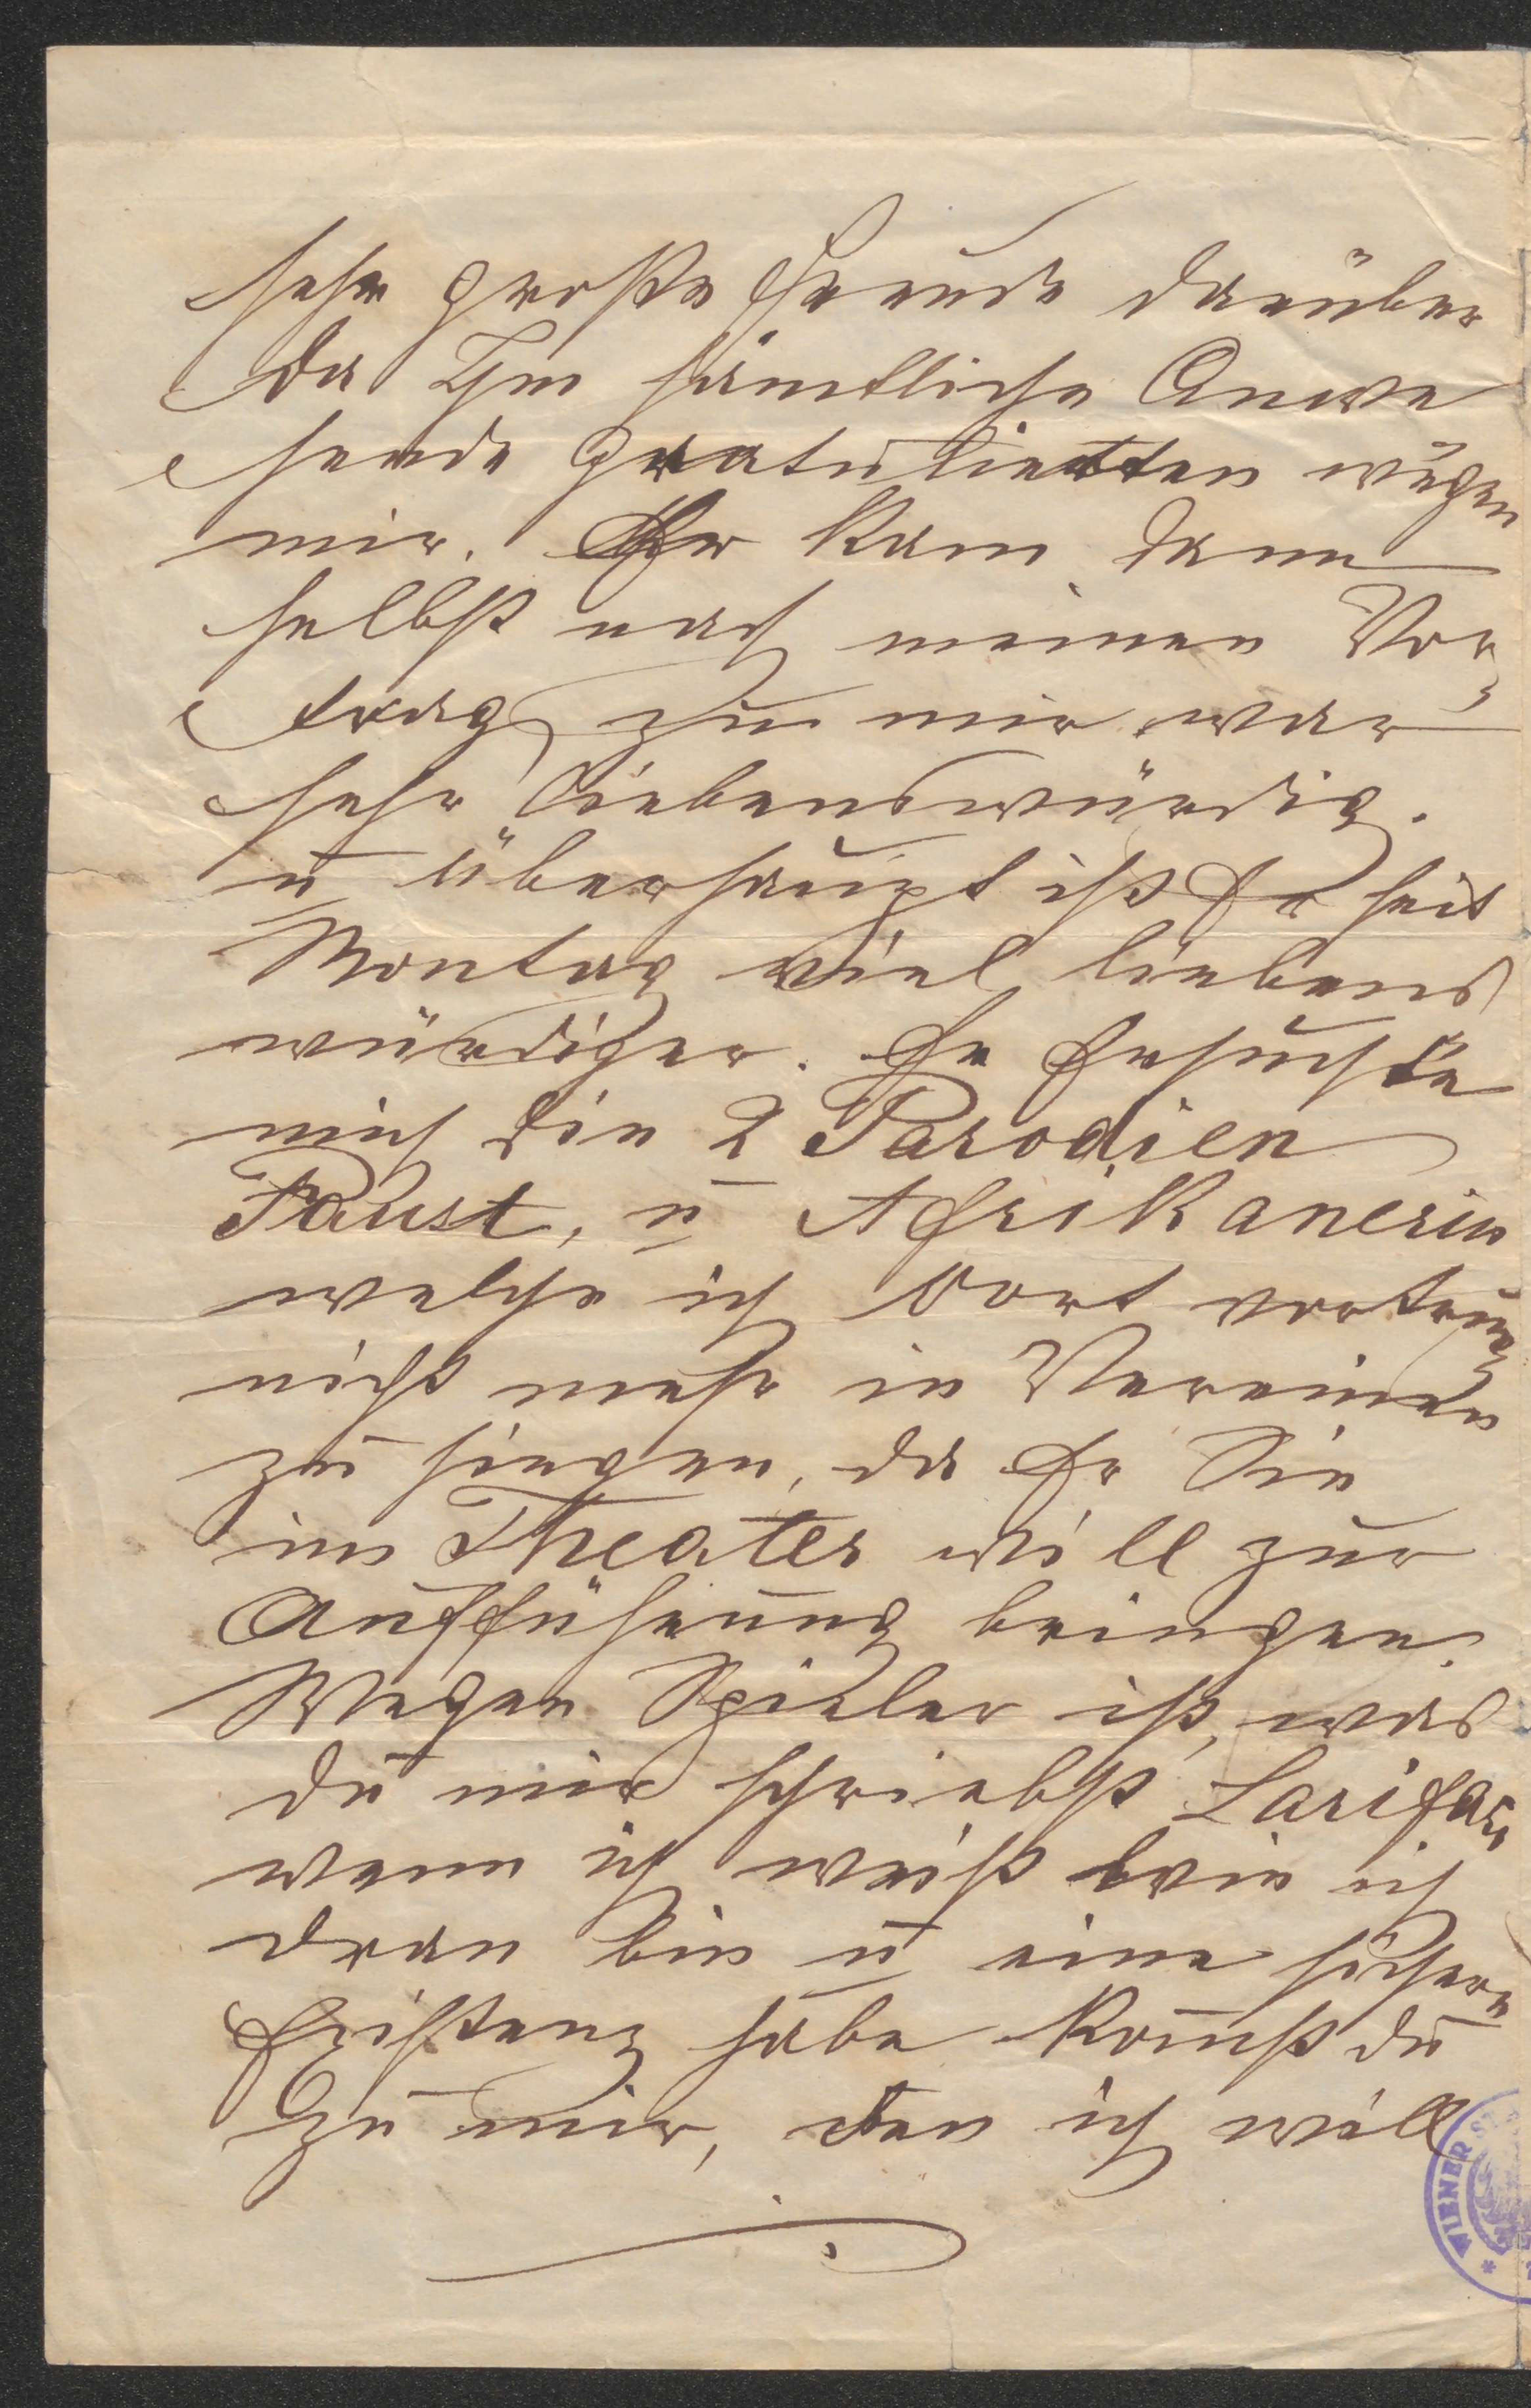 sehr große Freude darüber
da Ihm sämtliche Anwe
sende gratulierten wegen
mir. Er kam dann
selbst nach meinen Vor-
trag zu mir war
sehr liebenswürdig.
u überhaupt ist Er seit
Montag viel liebens
würdiger. Er ersuchte
mich die 2 Parodien
Faust, u Afrikanerin
welche ich dort vortrug
nicht mehr in Vereinen
zu singen, da Er Sie
im Theater will zur
Aufführung bringen.
Wegen Spieler ist, was
du mir schriebst Larifari
wenn ich weiß wie ich
dran bin u eine sichere
Existenz habe komst du
zu mir, den ich will
WIENER